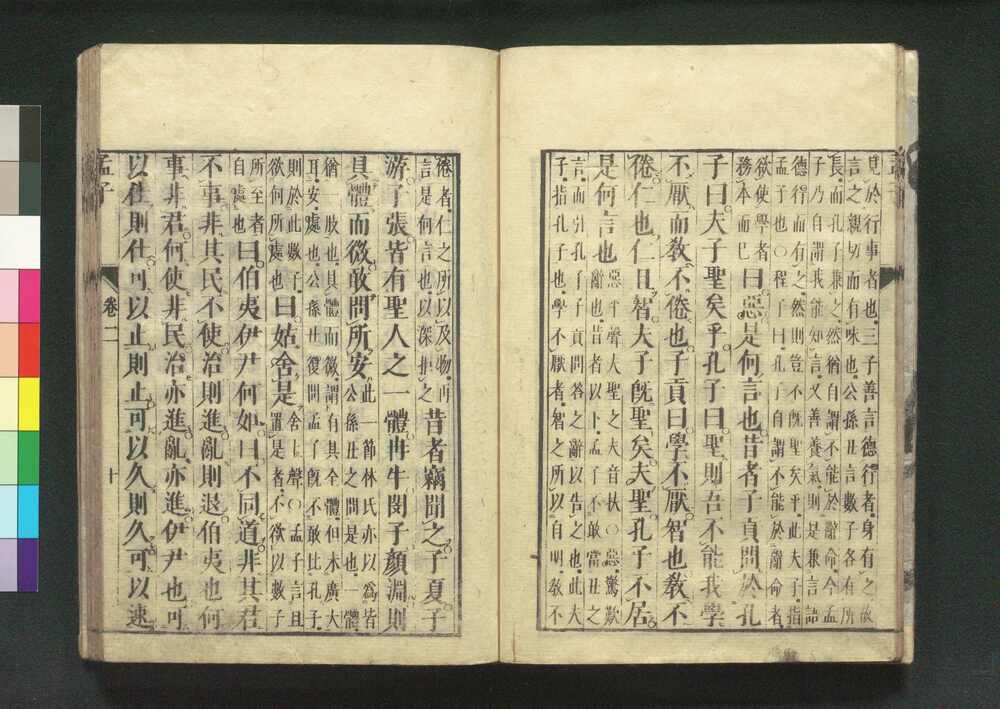 見於行事者也三子善言德行者身有之故
言之親切而有味也公孫丑言數子各有所
長而孔子兼之然猶自謂不能於辭命今孟
子乃自謂我能知言又善養氣則是兼言語
德得而有之然則豈不旣聖矣乎此夫子指
孟子也○程子曰孔子自謂不能於辭命者
欲使學者
務本而已
曰惡是何言也昔者子貢問於孔
子曰夫子聖矣乎孔子曰聖則吾不能我學
不厭而敎不倦也子貢曰學不厭智也敎不
倦仁也仁且智夫子旣聖矣夫聖孔子不居
是何言也
惡平聲夫聖之夫音扶○惡驚歎
辭也昔者以下孟子不敢當丑之
言而引孔子子貢問答之辭以告之也此夫
子指孔子也學不厭者智之所以自明敎不
倦者仁之所以及物再
言是何言也以深拒之
昔者竊聞之子夏子
游子張皆有聖人之一體冉牛閔子顏淵則
具體而微敢問所安
此一節林氏亦以爲皆
公孫丑之問是也一體
猶一肢也具體而微謂有其全體但未廣大
耳安處也公孫丑復問孟子旣不敢比孔子
則於此數子
欲何所處也
曰姑舍是
舍上聲○孟子言且
置是者不欲以數子
所至者
自處也
曰伯夷伊尹何如曰不同道非其君
不事非其民不使治則進亂則退伯夷也何
事非君何使非民治亦進亂亦進伊尹也可
以仕則仕可以止則止可以久則久可以速
孟子
卷二
十